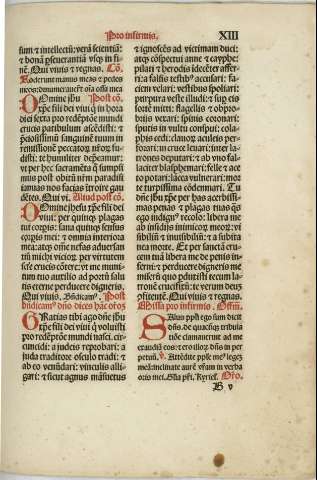 Pro infirmis.
XIII
sum et intellectū: verā scientiā:
et bonā pseuerantiā vsq; in fi-
nē. Qui viuis et regnas. Cō.
Foderunt manus meas et pedes
meos: dinumerauerūt oīa ossa mea
Omine iesu Post cō.
xpe fili dei viui q̄ in hora
diei sexta pro redēptōe mundi
crucis patibulum ascēdisti: et
preciosissimū sanguinē tuum in
remissionē peccatorū nrorum fu-
disti: te humiliter deprecamur:
vt per hec sacramēta q̄ sumpsi-
mus post obitū nrm paradisi
ianuas nos facias ītroire gau-
dētes. Qui vi. Aliud post cō.
Omine iesu xpe fili dei
viui: per quinq; plagas
tui corporis: sana quinq; sensus
corporis mei: et omnia interiora
mea: atq; om̄e nefas aduersan-
tiū michi viciorū. per virtutem
sctē crucis cōtere: et me muni-
tum tuo auxilio ad portū salu-
tis eterne perducere digneris.
Qui viuis. Bn̄dicam⁹. Post
bn̄dicam⁹ dn̄o dices hāc orōez
Gratias tibi ago dn̄e iesu
xpe fili dei viui q̄ voluisti
pro redēptōe mundi nasci. cir-
cuncidi. a iudeis reprobari: a
iuda traditore osculo tradi: et
ab eo vendāri. vinculis alli-
gari: et sicut agnus māsuetus
et ignoscēs ad victimam duci:
atq; cōspectui anne et cayphe:
pilati et herodis idecēter affer-
ri: a falsis testib⁹ accusari: fa-
ciem velari: vestibus spoliari:
purpura veste illudi: et sug cri-
mine mori: flagellis et obpro-
briis vexari: spinis coronari:
sputis in vultu conspui: cola-
phis cedi: clauor̄ aculeis perfo-
rari: in cruce leuari: inter la-
trones deputari: et ab vno fal-
laciter blasphemari: felle et ace
to potari: lācea vulnerari: mor
te turpissima cōdēnari. Tu
dn̄e iesu xpe per has acerbissi-
mas penas et plagas tuas q̄s
ego indign⁹ recolo: libera me
ab insidiis inimicor̄ meor̄: vi
sibiliū et inuisibiliū: et a subita
nea morte. Et per sanctā cru-
cem tuā libera me de penis in-
ferni: et perducere digneris me
miserū quo pduxisti tecum la-
tronē crucifixū: te verum deuz
cōfitentē. Qui viuis et regnas.
Missa pro infirmis. Offm.
Salus ppli ego sum dicit
dn̄s. de quacūq; tribula
tiōe clamauerint ad me
exaudiā eos: et ero illor̄ dn̄s in per
petuū. v. Attēdite pple me⁹ legez
meā: inclinate aurē vr̄am in verba
oris mei. Glia pr̄i. Kyriel. Oro.
B v